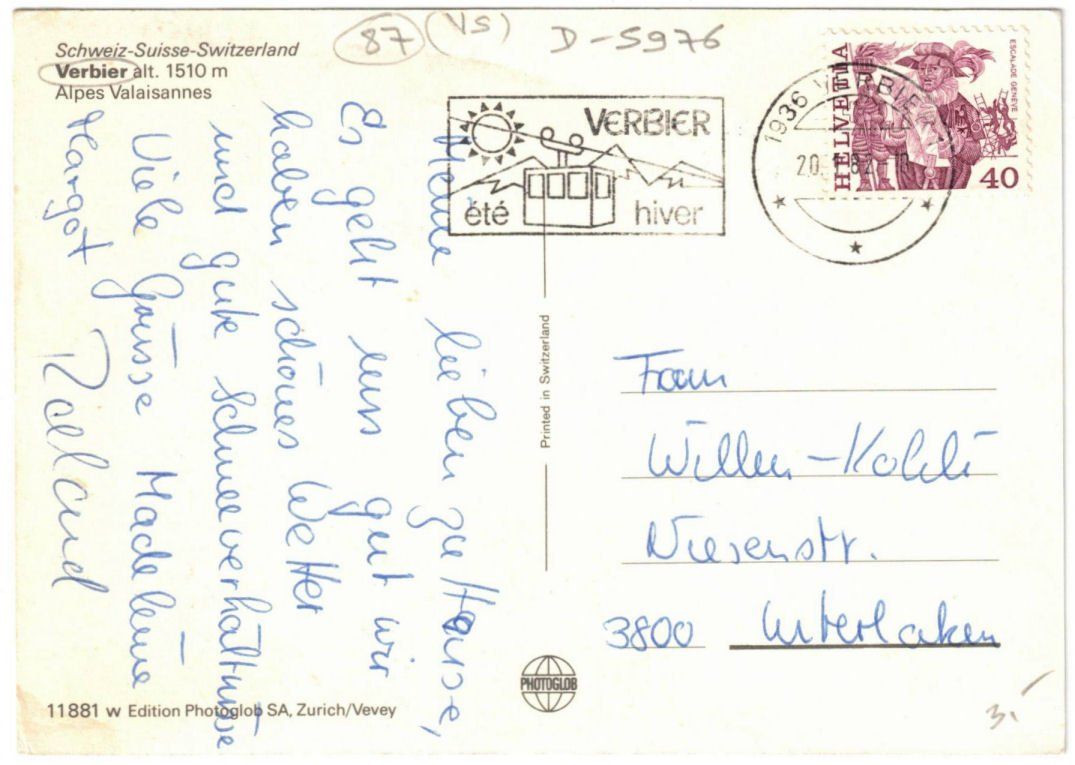 87 (VS) D-5976
Schweiz-Suisse-Switzerland
Verbier alt. 1510 m
Alpes Valaisannes
VERBIER
été hiver
1936 VERBIER
HELVETIA
ESCALADE GENÈVE
40
Meine lieben zu Hause,
Es geht uns gut wir
haben schönes Wetter
und gute Schneeverhältnisse
Viele Grüsse Madeleine
Margot Roland
Printed in Switzerland
Frau
Willen-Kohli
Wiesenstr.
3800 Interlaken
PHOTOGLOB
11881 w Edition Photoglob SA, Zurich/Vevey
3.-